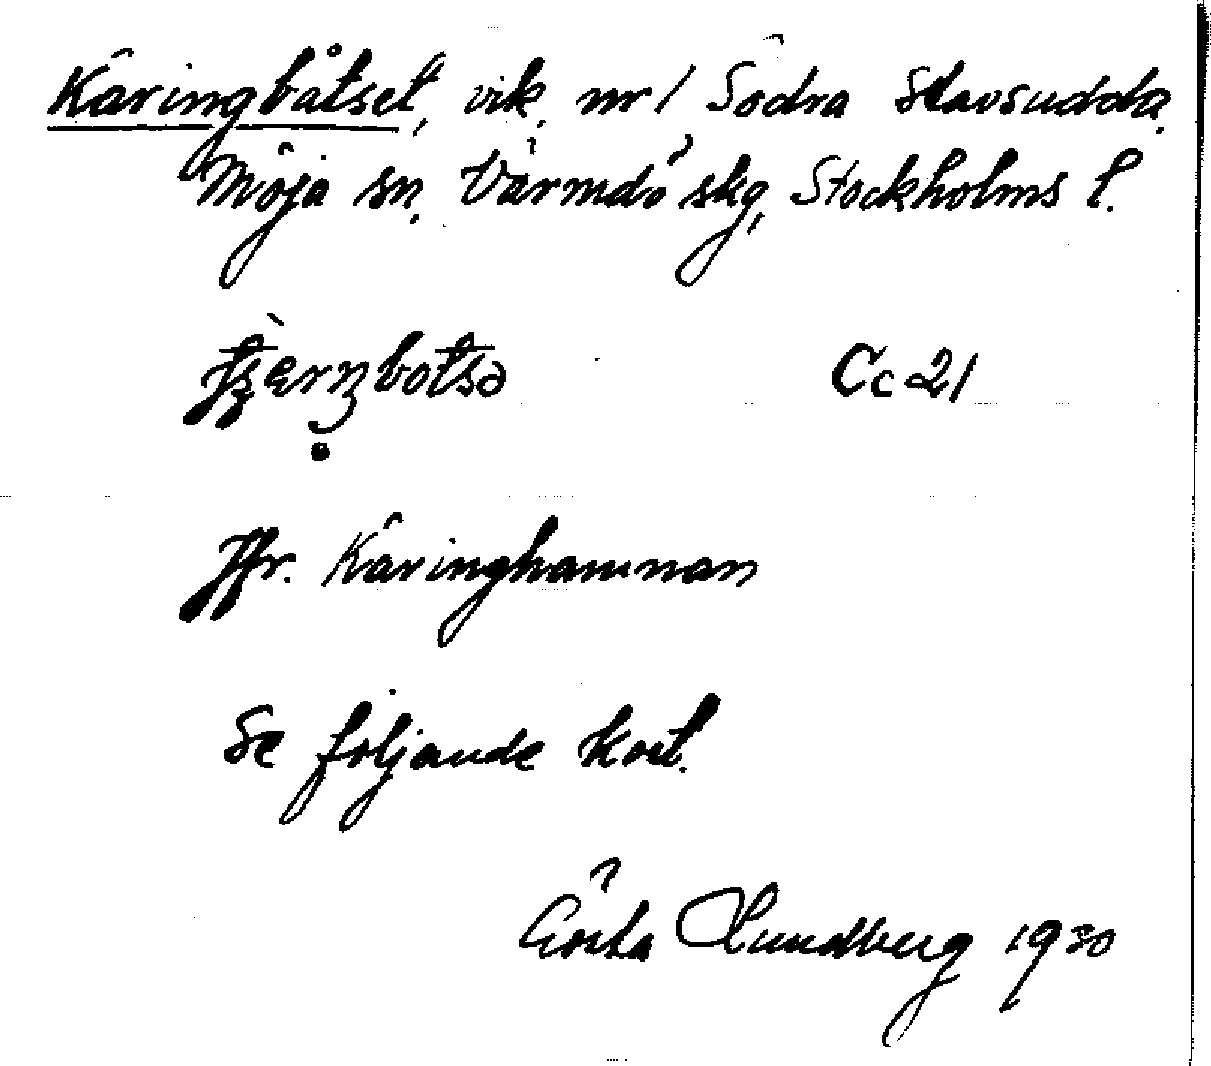 Käringbåtset, vik, nr 1 Södra Stavsudda,
Möja sn, Värmdö skg, Stockholms l.
Cc 21
Jfr. Käringhamnan
Se följande kort.
Gösta Lundberg 1930